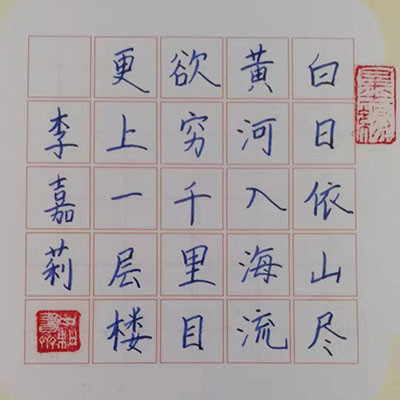 白日依山尽
黄河入海流
欲穷千里目
更上一层楼
李嘉莉